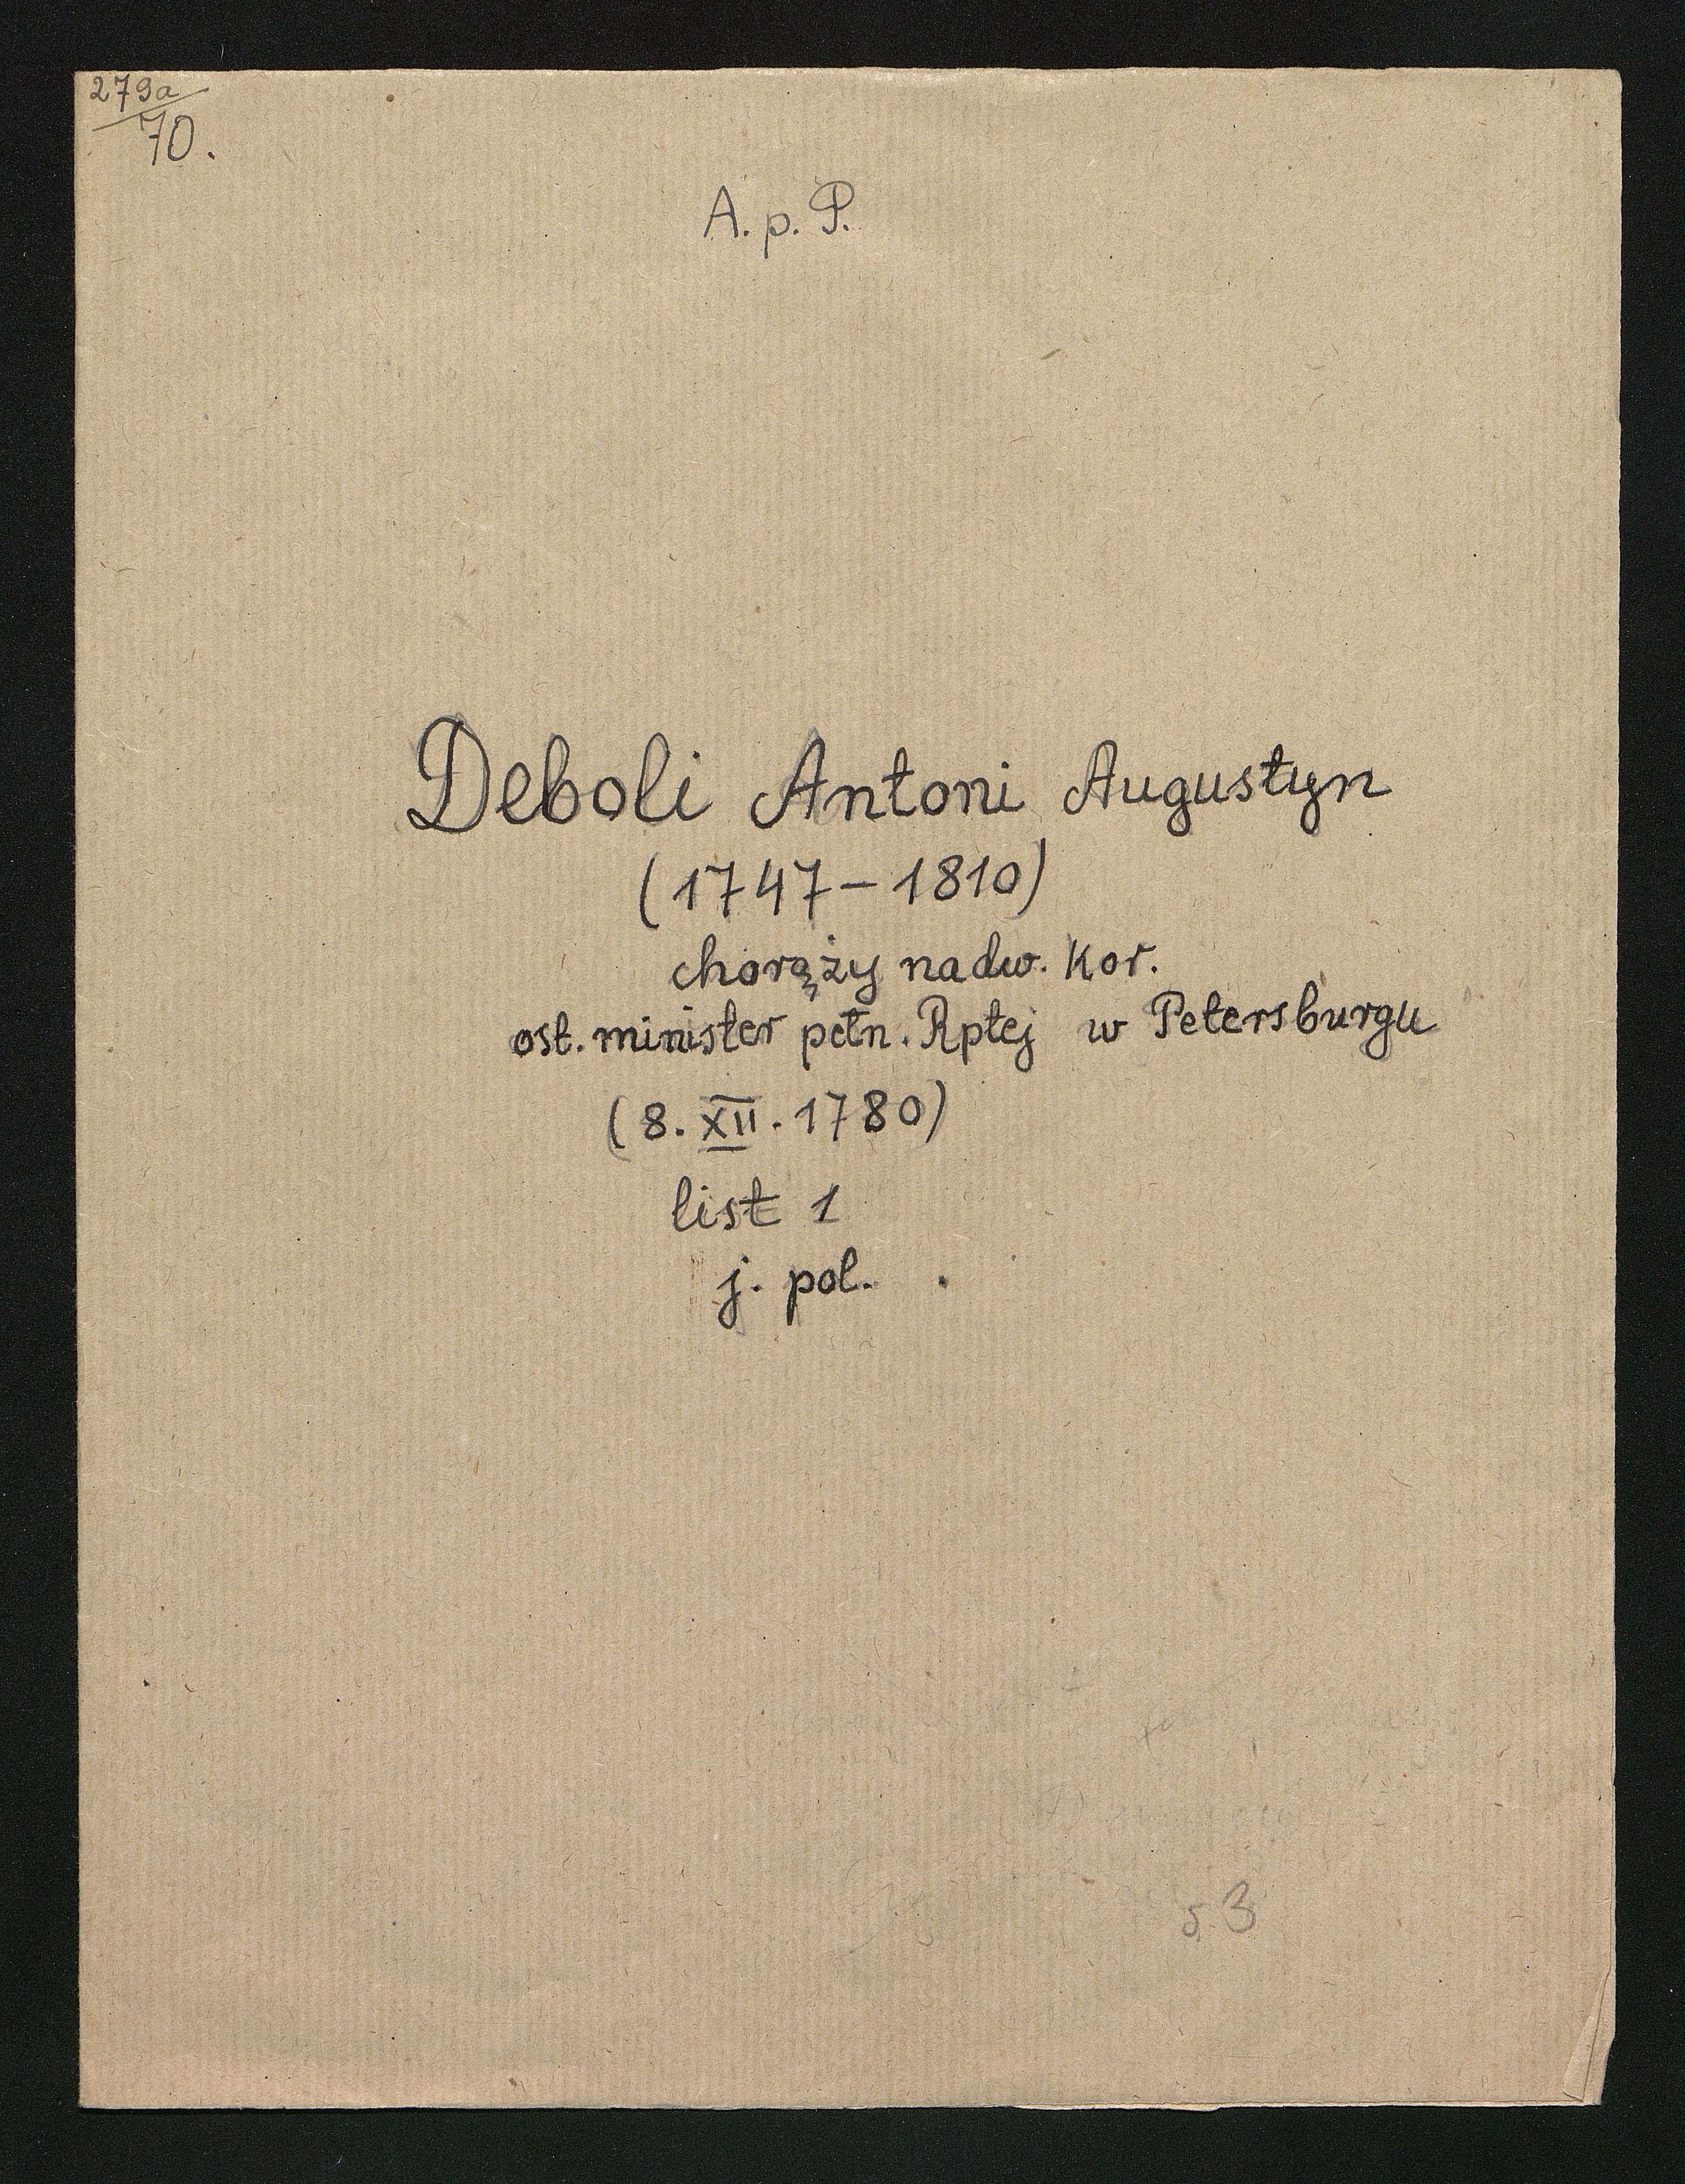 279a
70.
A. p. P.
Deboli Antoni Augustyn
(1747 – 1810)
chorąży nadw. Kor.
ost. minister pełn. Rptej w Petersburgu
(8. XII. 1780)
list 1
j. pol.
53